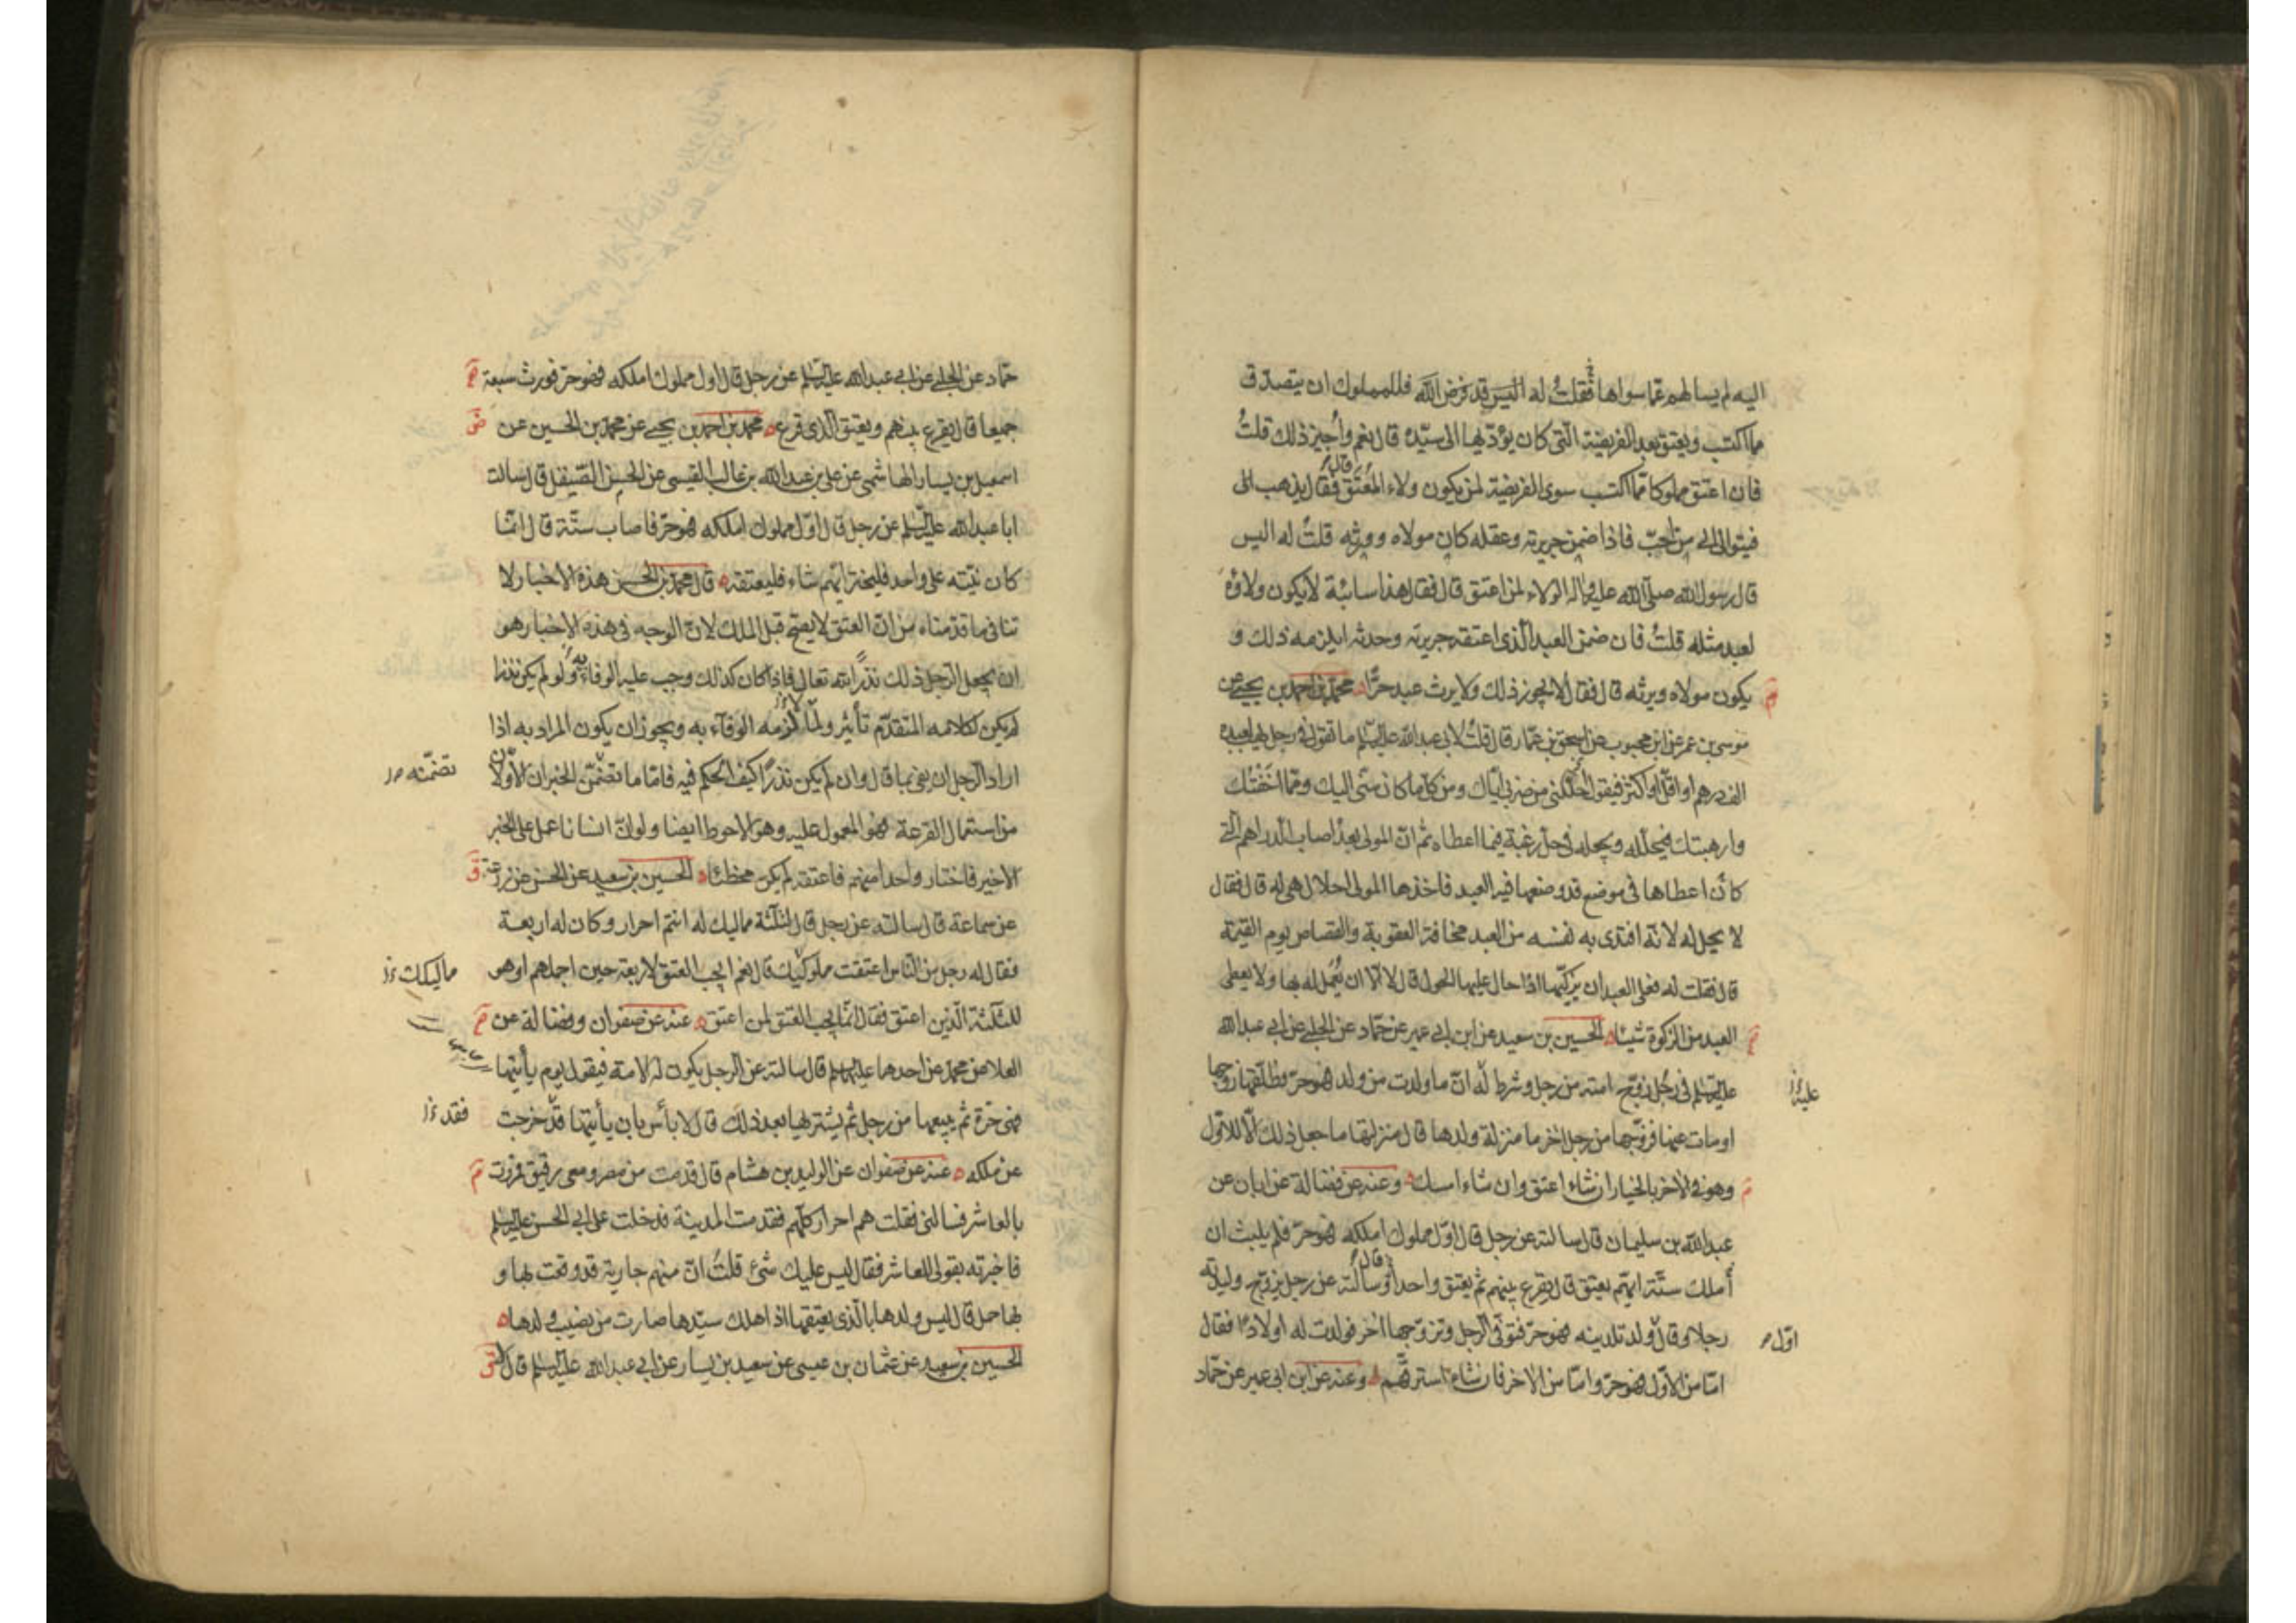 اليه لم يسالهم عما سواها فقلتُ له اليس قد فرض الله فللمملوك ان يتصدق
مما اكتسب ويعتق بعد الفريضة التي كان يؤدّيها الى سيّده قال نعم وأُجيز ذلك قلتُ
فان اعتق مملوكا مما اكتسب سوى الفريضة لمن يكون ولاء المُعتَق قال فقال يذهب
فيتوالى الى من احبّ فاذا ضمن جريرته وعقله كان مولاه وورثه قلتُ له اليس
قال رسول الله صلى الله عليه واله الولاء لمن اعتق قال فقال هذا سائبة لا يكون ولاؤه
لعبد مثله قلتُ فان ضمن العبد الذي اعتقه جريرته وحدثه ايلزمه ذلك و
يكون مولاه ويرثه قال فقال لا يجوز ذلك ولا يرث عبد حرًّا محمد بن احمد بن يحيى عن
موسى بن عمر عن ابن محبوب عن اسحق بن عمّار قال قلتُ لابي عبد الله عليه السلم ما تقول في رجل يهب لعبده
الف درهم او اقلّ او اكثر فيقول حلّلني من ضربي ايّاك ومن كلّ ما كان منّي اليك وممّا اخفتُك
وارهبتك فيحلّله ويجعله في حلّ رغبة فيما اعطاه ثم انّ المولى بعدُ اصاب الدراهم التي
كان اعطاها في موضع قد وضعها فيه العبد فاخذها المولى احلال هي له قال فقال
لا يحل له لانه افتدى به نفسه من العبد مخافة العقوبة والقصاص يوم القيمة
قال فقلت له فعلى العبد ان يزكّيها اذا حال عليها الحول قال لا الّا ان يُعمل له بها ولا يعطى
العبد من الزكوة شيئا الحسين بن سعيد عن ابن ابي عمير عن حمّاد عن الحلبي عن ابي عبد الله
عليه السلم في رجُل زوّج امته من رجل وشرط له انّ ما ولدت من ولد فهو حرّ فطلّقها زوجها
عليه
او مات عنها فزوّجها من رجل اخر ما منزلة ولدها قال منزلتها ما جعل ذلك الّا للاوّل
وهو في الاخر بالخيار ان شاء اعتق وان شاء امسك وعنه عن فضالة عن ابان عن
عبد الله بن سليمان قال سالته عن رجل قال اوّل مملوك املكه فهو حرّ فلم يلبث ان
أملك ستّة ايّهم يعتق قال يقرع بينهم ثم يعتق واحدا قال وسالته عن رجل يزوّج وليدته
رجلا وقال ولد تلدينه فهو حرّ فتوفّى الرجل وتزوّجها اخر فولدت له اولادا فقال
اوّل
امّا من الاوّل فهو حرّ وامّا من الاخر فان شاء استرقّهم وعنه عن ابن ابي عمير عن حمّاد
حمّاد عن الحلبي عن ابي عبد الله عليه السلم عن رجل قال اول مملوك املكه فهو حرّ فورث سبعة
جميعا قال يقرع بينهم ويعتق الذي قرع محمد بن احمد بن يحيى عن محمد بن الحسين عن
اسمعيل بن يسار الهاشمي عن علي بن عبد الله بن غالب القيسى عن الحسن الصيقل قال سالت
ابا عبد الله عليه السلم عن رجل قال اوّل مملوك املكه فهو حرّ فاصاب ستّة قال انّما
كان نيّته على واحد فليختر ايّهم شاء فليعتقه قال محمد بن الحسن هذه الاخبار لا
تنافى ما قدّمناه من انّ العتق لا يصحّ قبل الملك لانّ الوجه فى هذه الاخبار هو
ان يجعل الرجل ذلك نذرًا لله تعالى فاذا كان كذلك وجب عليه الوفاء به ولو لم يكن نذرا
لم يكن لكلامه المتقدّم تأثير ولما لزمه الوفآء به ويجوز ان يكون المراد به اذا
اراد الرجل ان يفى بما قال وان لم يكن نذرًا كيف الحكم فيه فامّا ما تضمّن الخبران الأوّلان
تضمّنه
من استعمال القرعة فهو المعمول عليه وهو الاحوط ايضا ولو انّ انسانا عمل على الخبر
الاخير فاختار واحدا منهم فاعتقه لم يكن مخطئا الحسين بن سعيد عن الحسن عن زرعة
عن سماعة قال سالته عن رجل قال لثلثة مماليك له انتم احرار وكان له اربعة
فقال له رجل من الناس اعتقت مملوكيك قال نعم ايجب العتق لاربعة حين اجملهم او هو
مماليكك
للثلثة الّذين اعتق فقال انّما يجب العتق لمن اعتق عنه عن صفوان وفضالة عن
العلا عن محمد عن احدهما عليهما السلم قال سالته عن الرجل يكون له الامة فيقول يوم يأتيها
فهى حرّة ثم يبيعها من رجل ثم يشتريها بعد ذلك قال لا بأس بان يأتيها قد خرجت
فقد
عن ملكه عنه عن صفوان عن الوليد بن هشام قال قدمت من مصر ومعى رقيق فمررت
بالعاشر فسالنى فقلت هم احرار كلّهم فقدمت المدينة فدخلت على ابي الحسن عليه السلم
فاخبرته بقولى للعاشر فقال ليس عليك شئ قلتُ انّ منهم جارية قد وقعت بها و
بها حمل قال ليس ولدها بالّذى يعتقها اذا هلك سيّدها صارت من نصيب ولدها
الحسين بن سعيد عن عثمان بن عيسى عن سعيد بن يسار عن ابي عبد الله عليه السلم قال